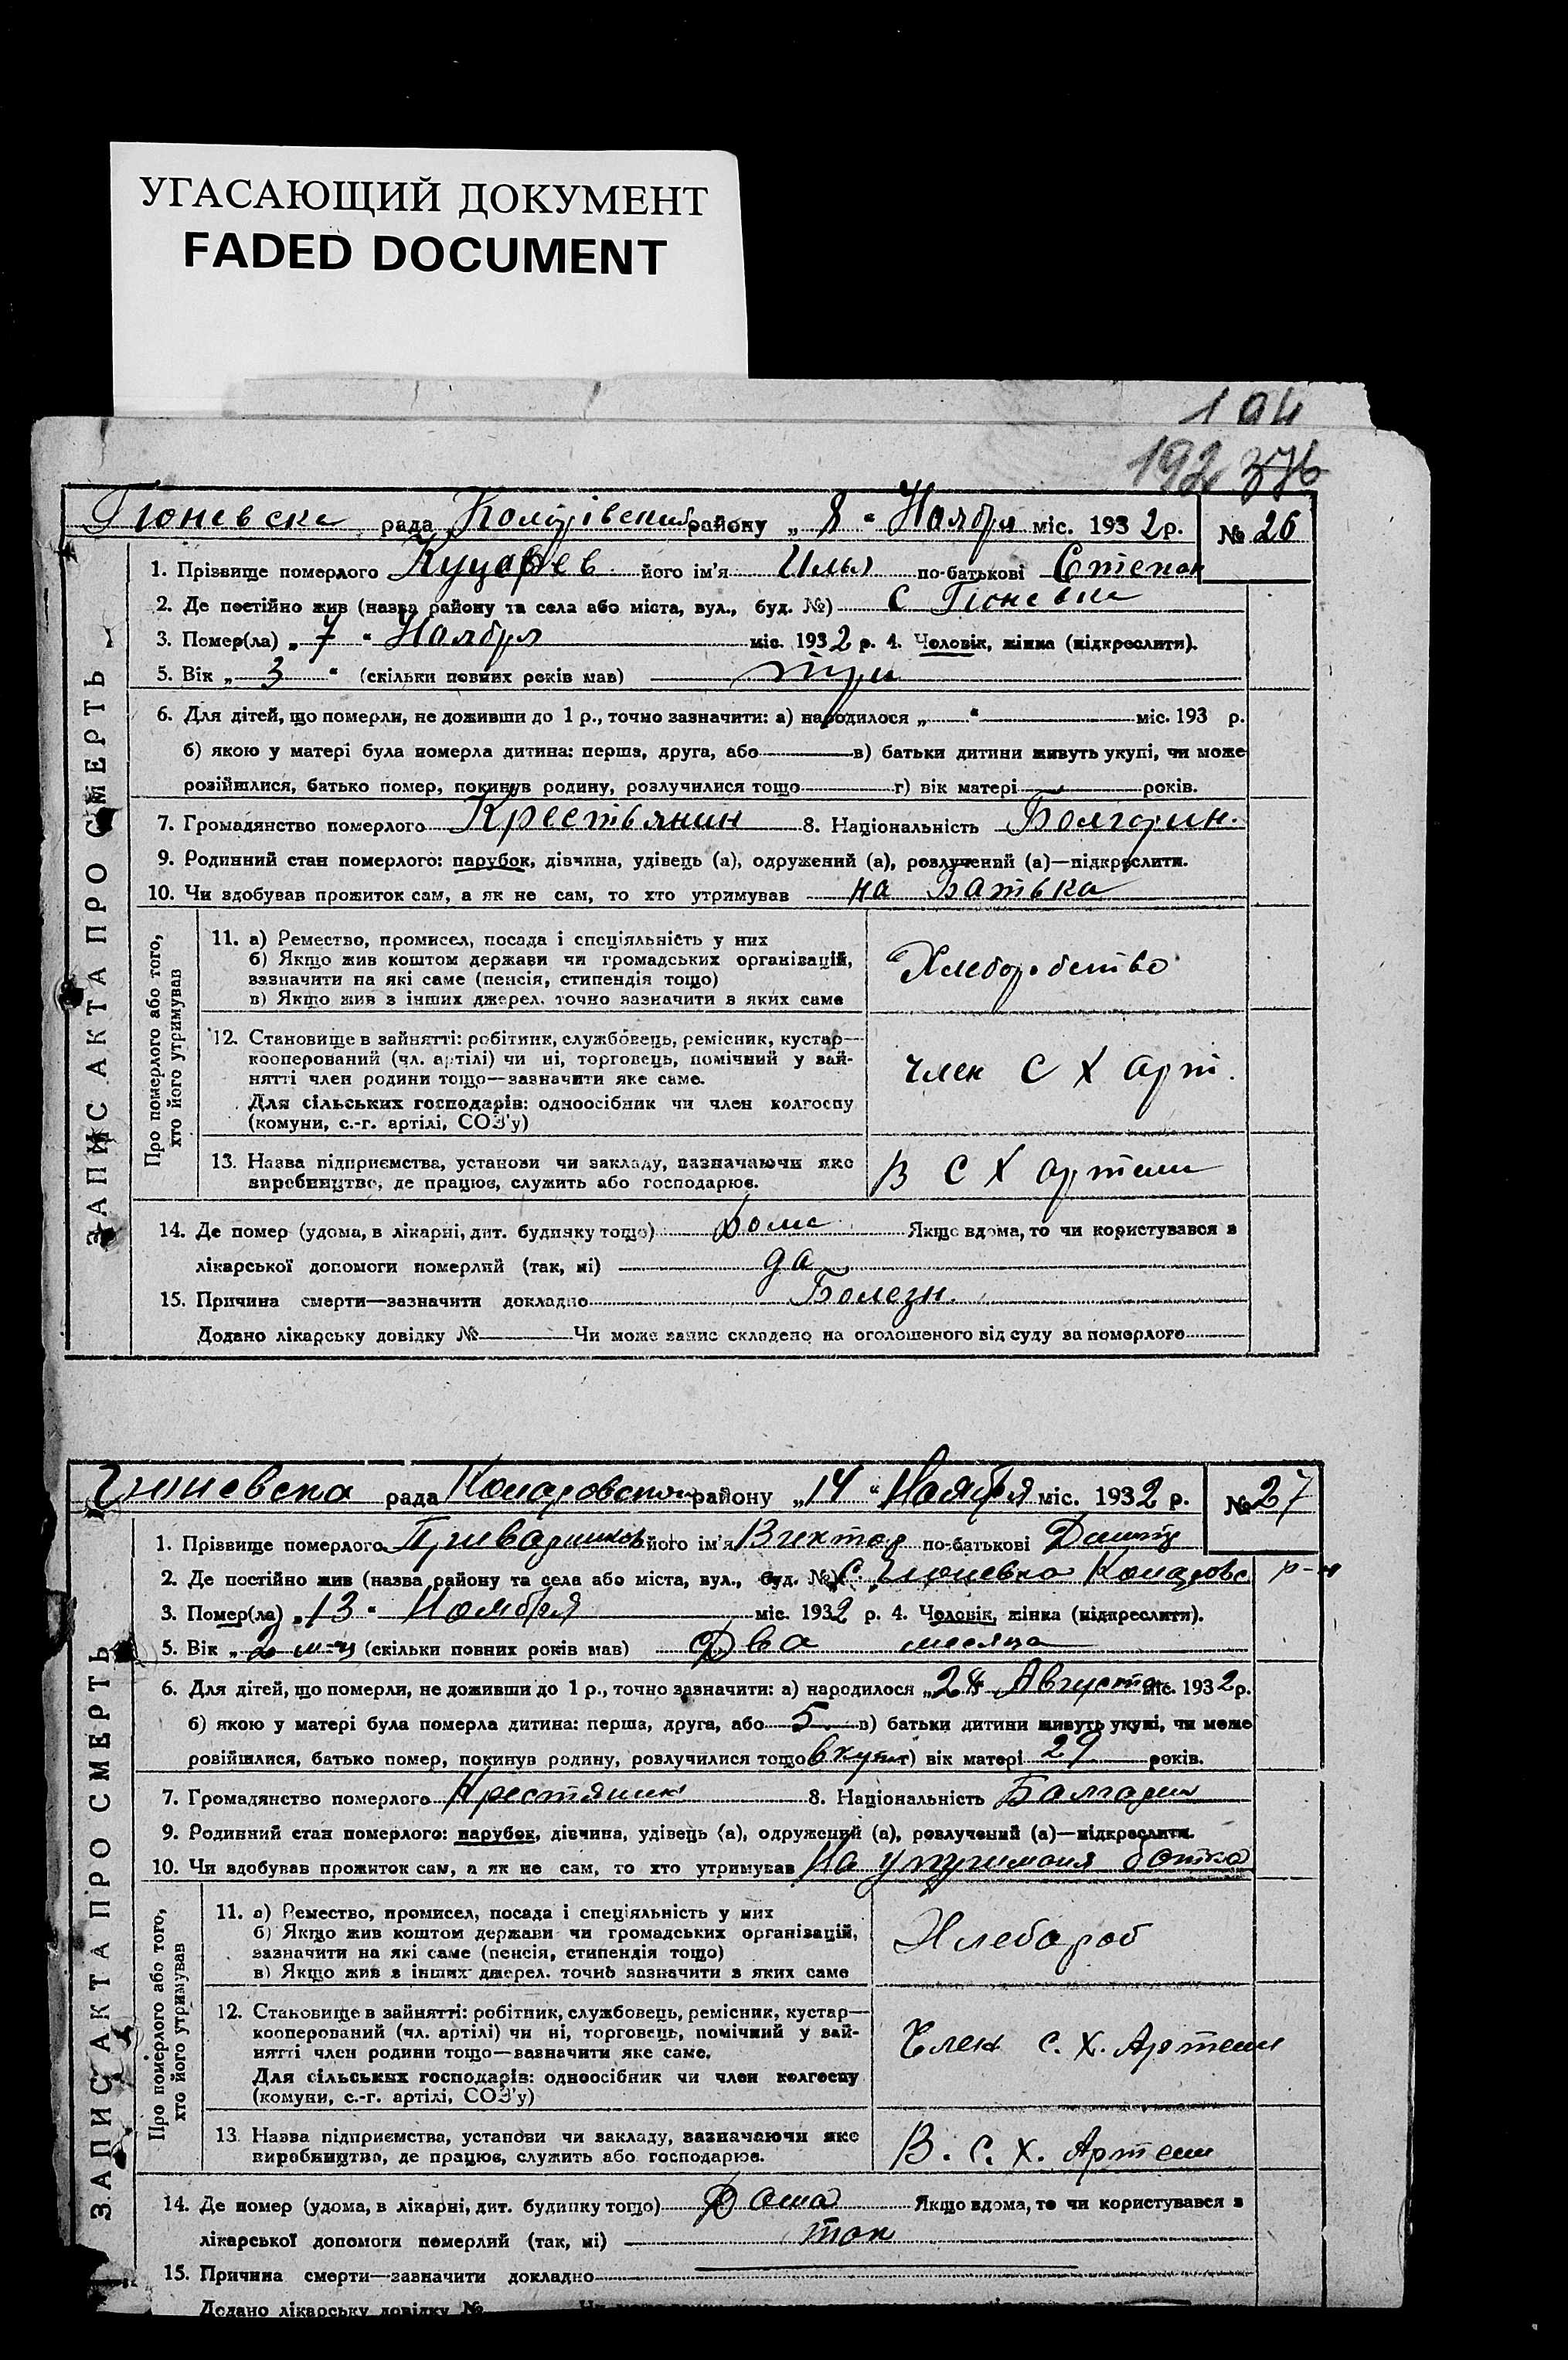 УГАСАЮЩИЙ ДОКУМЕНТ
FADED DOCUMENT
194
192 376
Гюневска рада району „ 8 “ Ноября міс. 1932 р. № 26
ЗАПИС АКТА ПРО СМЕРТЬ
1. Прізвище померлого його ім'я Илья по-батькові Степан
2. Де постійно жив (назва району та села або міста, вул., буд. №) с Гюневка
3. Помер(ла) „ 7 “ Ноября міс. 1932 р. 4. Чоловік, жінка (підкреслити).
5. Вік „ 3 “ (скільки повних років мав) три
6. Для дітей, що померли, не доживши до 1 р., точно зазначити: а) народилося „ “ міс. 193 р.
б) якою у матері була померла дитина: перша, друга, або в) батьки дитини живуть укупі, чи може
розійшлися, батько помер, покинув родину, розлучилися тощо г) вік матері років.
7. Громадянство померлого Крестьянин 8. Національність Болгарин.
9. Родинний стан померлого: парубок, дівчина, удівець (а), одружений (а), розлучений (а)—підкреслити.
10. Чи здобував прожиток сам, а як не сам, то хто утримував на Батька
Про померлого або того,
хто його утримував
11. а) Ремество, промисел, посада і спеціяльність у них
б) Якщо жив коштом держави чи громадських організацій,
зазначити на які саме (пенсія, стипендія тощо)
в) Якщо жив з інших джерел, точно зазначити з яких саме
Хлеборобство
12. Становище в зайнятті: робітник, службовець, ремісник, кустар—
кооперований (чл. артілі) чи ні, торговець, помічний у зай-
нятті член родини тощо—зазначити яке саме.
Для сільських господарів: одноосібник чи член колгоспу
(комуни, с.-г. артілі, СОЗ'у)
член С Х арт.
13. Назва підприємства, установи чи закладу, зазначаючи яке
виробництво, де працює, служить або господарює.
В С Х артели
14. Де помер (удома, в лікарні, дит. будинку тощо) дома Якщо вдома, то чи користувався з
лікарської допомоги померлий (так, ні) да
15. Причина смерти—зазначити докладно Болезн.
Додано лікарську довідку № Чи може запис складено на оголошеного від суду за померлого
Гюневска рада району „ 14 “ Ноября міс. 1932 р. № 27
ЗАПИС АКТА ПРО СМЕРТЬ
1. Прізвище померлого його ім'я Виктор по-батькові
2. Де постійно жив (назва району та села або міста, вул., буд. №) с. Гюневка р-н
3. Помер(ла) „ 13 “ Ноября міс. 1932 р. 4. Чоловік, жінка (підкреслити).
5. Вік „ 2 м-ц (скільки повних років мав) Два месяца
6. Для дітей, що померли, не доживши до 1 р., точно зазначити: а) народилося „ Августа міс. 1932 р.
б) якою у матері була померла дитина: перша, друга, або 5 в) батьки дитини живуть укупі, чи може
розійшлися, батько помер, покинув родину, розлучилися тощо вкупі г) вік матері 29 років.
7. Громадянство померлого Крестянин 8. Національність Балгарин
9. Родинний стан померлого: парубок, дівчина, удівець (а), одружений (а), розлучений (а)—підкреслити.
10. Чи здобував прожиток сам, а як не сам, то хто утримував На утримания батка
Про померлого або того,
хто його утримував
11. а) Ремество, промисел, посада і спеціяльність у них
б) Якщо жив коштом держави чи громадських організацій,
зазначити на які саме (пенсія, стипендія тощо)
в) Якщо жив з інших джерел, точно зазначити з яких саме
Хлебороб
12. Становище в зайнятті: робітник, службовець, ремісник, кустар—
кооперований (чл. артілі) чи ні, торговець, помічний у зай-
нятті член родини тощо—зазначити яке саме.
Для сільських господарів: одноосібник чи член колгоспу
(комуни, с.-г. артілі, СОЗ'у)
Член С. Х. Артели
13. Назва підприємства, установи чи закладу, зазначаючи яке
виробництво, де працює, служить або господарює.
В. С. Х. Артели
14. Де помер (удома, в лікарні, дит. будинку тощо) Дома Якщо вдома, то чи користувався з
лікарської допомоги померлий (так, ні) так
15. Причина смерти—зазначити докладно
Додано лікарську довідку №